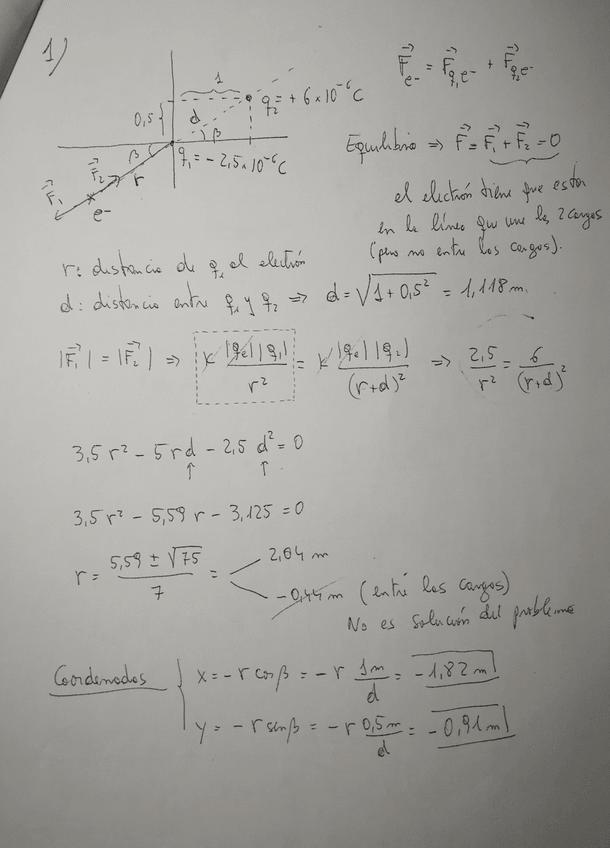 1)
F⃗e⁻ = F⃗q₁e⁻ + F⃗q₂e⁻
1
0,5
d
q₂ = + 6 × 10⁻⁶ C
β
β
q₁ = - 2,5 × 10⁻⁶ C
F⃗₂
r
F⃗₁
e⁻
Equilibrio ⇒ F⃗ = F⃗₁ + F⃗₂ = 0
el electrón tiene que estar
en la línea que une las 2 cargas
(pero no entre las cargas).
r: distancia de q₁ al electrón
d: distancia entre q₁ y q₂ ⇒ d = √(1 + 0,5²) = 1,118 m.
|F⃗₁| = |F⃗₂| ⇒ K |qe| |q₁| / r² = K |qe| |q₂| / (r+d)² ⇒ 2,5 / r² = 6 / (r+d)²
3,5 r² - 5 r d - 2,5 d² = 0
↑ ↑
3,5 r² - 5,59 r - 3,125 = 0
r = (5,59 ± √75) / 7 = 2,04 m
-0,44 m (entre las cargas)
No es solución del problema
Coordenadas x = - r cos β = - r 1m / d = -1,82 m
y = - r sen β = - r 0,5 m / d = -0,91 m